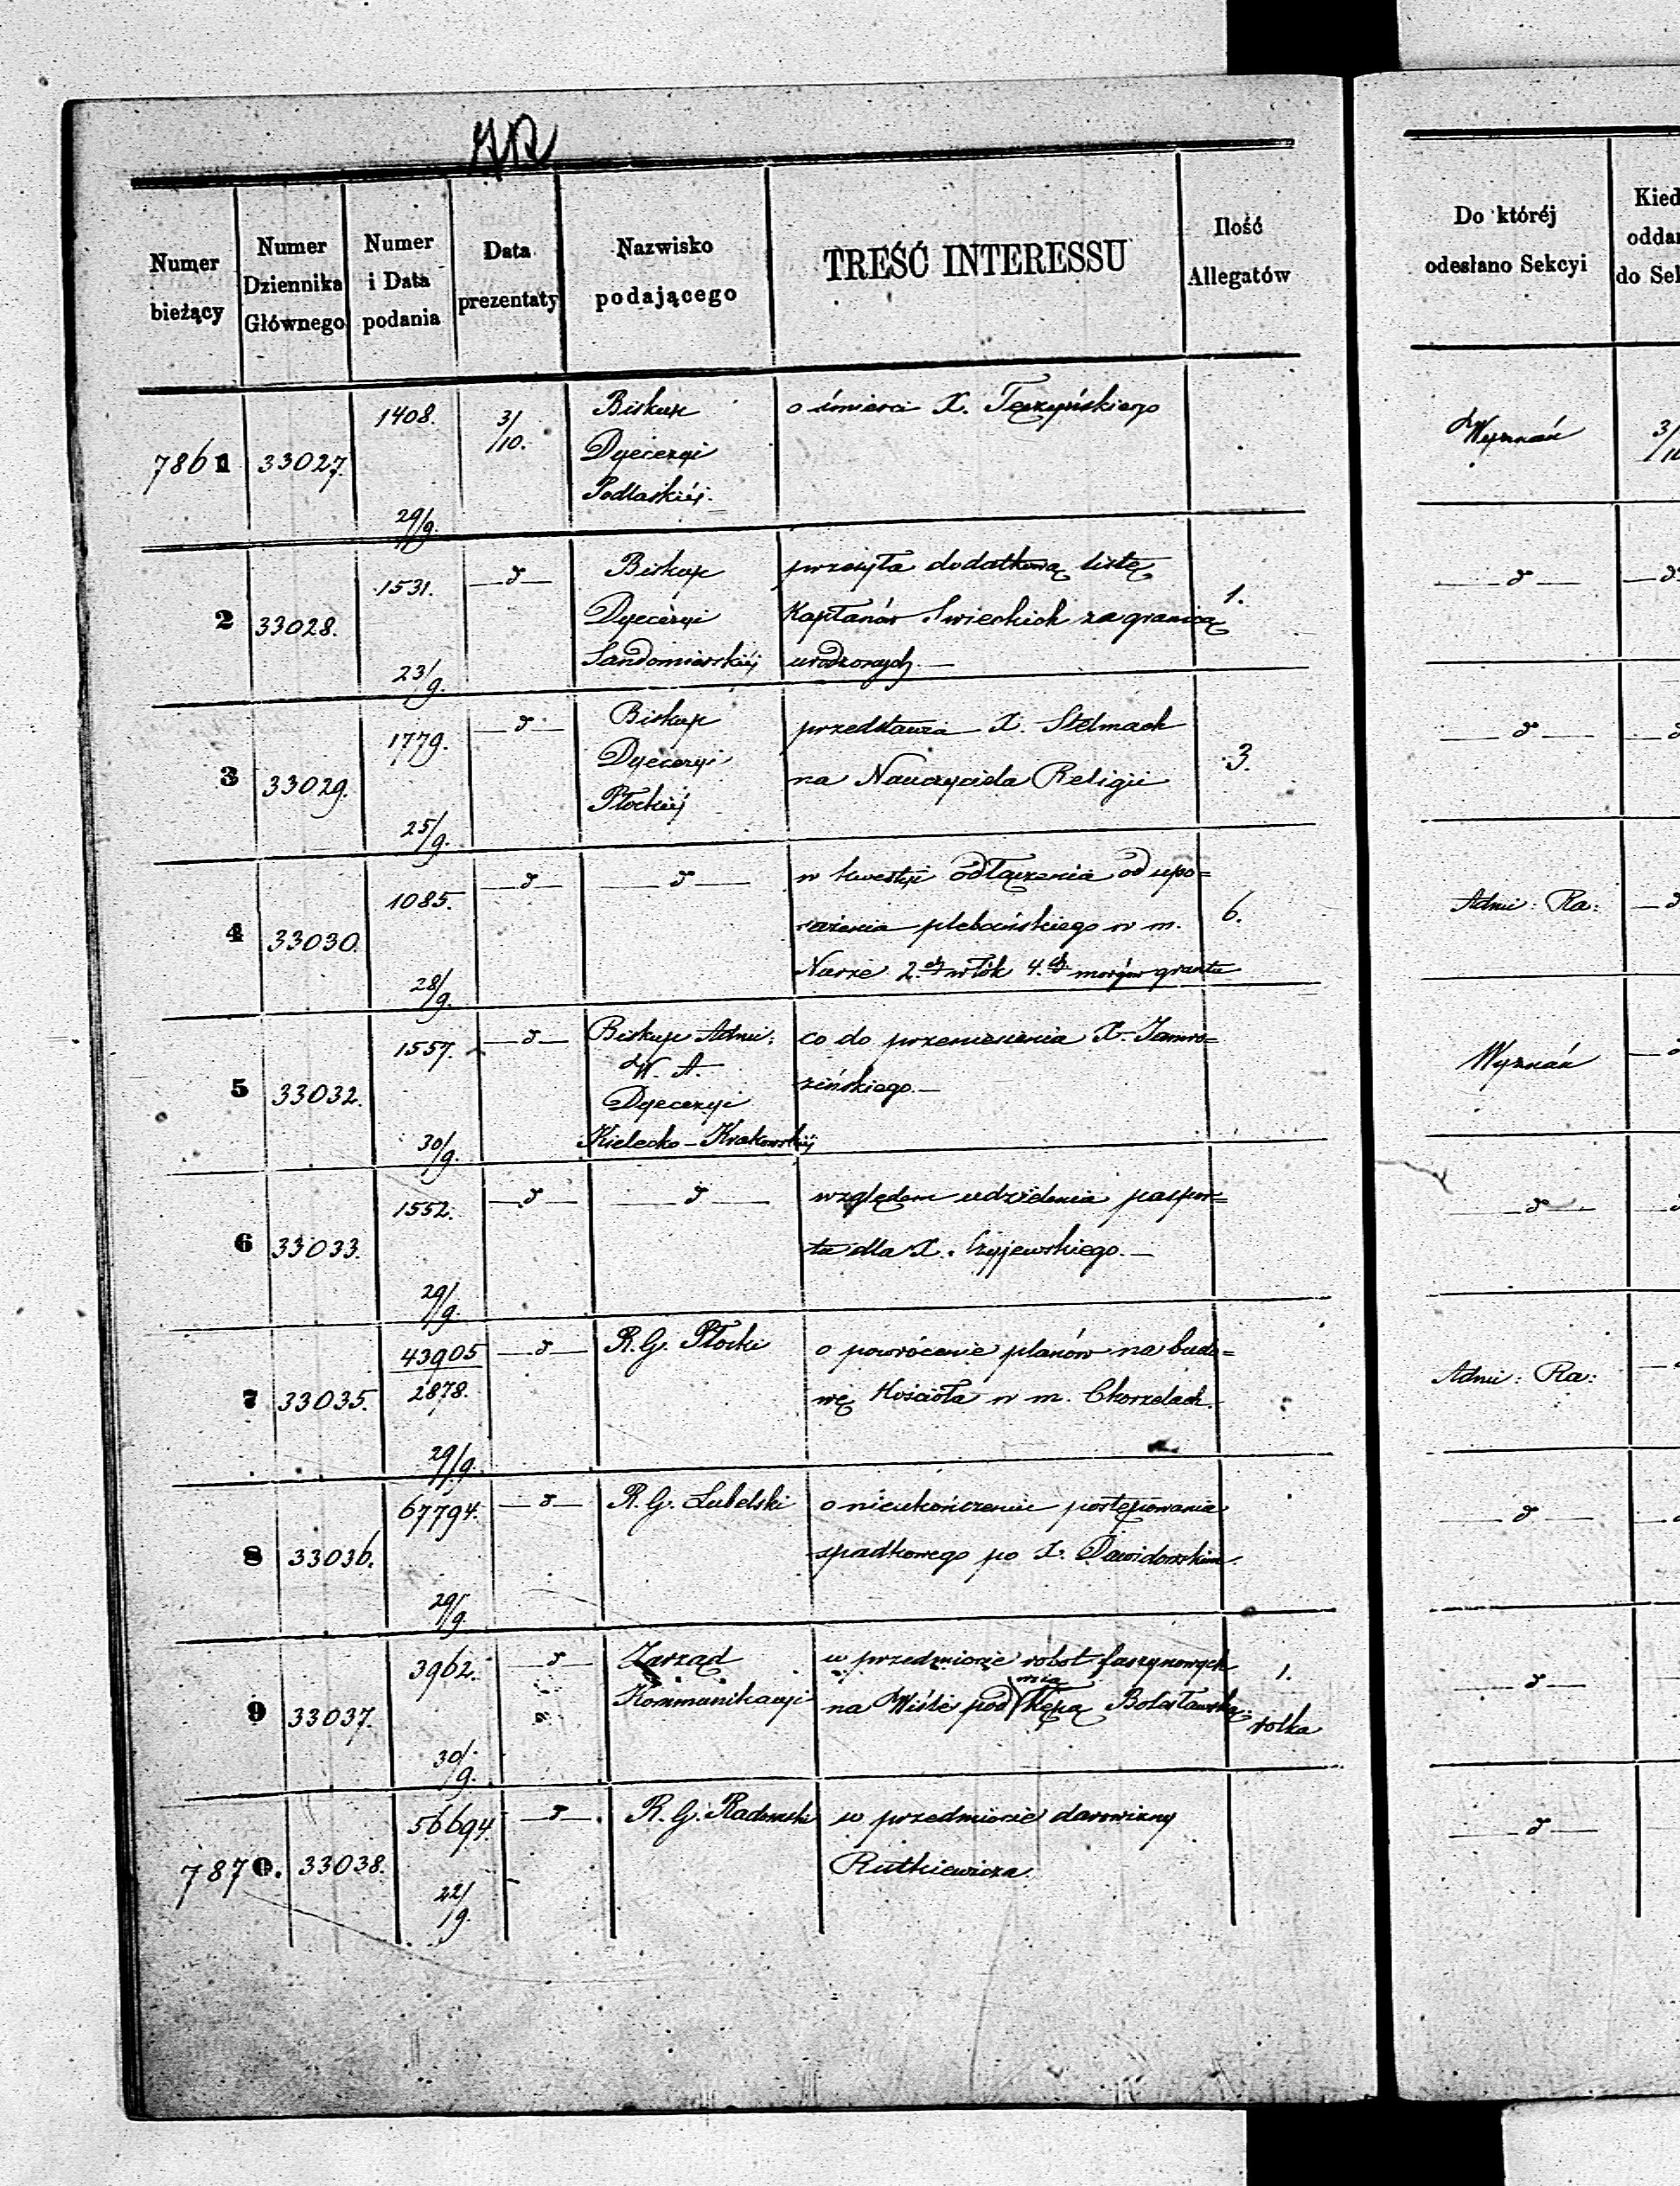 Numer bieżący | Numer Dziennika Głównego | Numer i Data podania | Data prezentaty | Nazwisko podającego | TREŚĆ INTERESSU | Ilość Allegatów | Do któréj odesłano Sekcyi
7861 | 33027. | 1408. 29/9. | 3/10. | Biskup Dyecezyi Podlaskiéj. | o śmierci X. Tęczyńskiego | | Wyznań | 3/10
2 | 33028. | 1531. 23/9. | d | Biskup Dyecezyi Sandomierskiéj | przesyła dodatkową listę Kapłanów Swieckich zagranicą urodzonych. | 1. | d
3 | 33029. | 1779. 25/9. | d | Biskup Dyecezyi Płockiéj | przedstawia X. Stelmach na Nauczyciela Religii | 3. | d
4 | 33030. | 1085. 28/9. | d | d | w kwestyi odłączenia od upo= sażenia plebańskiego w m. Nurze 2.ch włók 4.ch morgów gruntu | 6. | Admi: Ra:
5 | 33032. | 1557. 30/9. | d | Biskup Admi: W. A. Dyecezyi Kielecko-Krakowskiéj | co do przeniesienia X. Jamro= zińskiego. | | Wyznań
6 | 33033. | 1552. 29/9. | d | d | względem udzielenia paspor= tu dla X. Czyjewskiego. | | d
7 | 33035. | 43905 2878. 29/9. | d | R. G. Płocki | o powrócenie planów na budo= wę Kościoła w m. Chorzelach. | | Admi: Ra:
8 | 33036. | 67794. 29/9. | d | R. G. Lubelski | o nieukończenie postępowania spadkowego po X. Dawidowskim. | | d
9 | 33037. | 3962. 30/9. | d | Zarząd Kommunikacyi | w przedmiocie robot faszynowych na Wiśle pod wsią Kępą Bolesławską. | 1. rolka | d
7870. | 33038. | 56694. 22/9. | d | R. G. Radomski | w przedmiocie darowizny Rutkiewicza. | | d